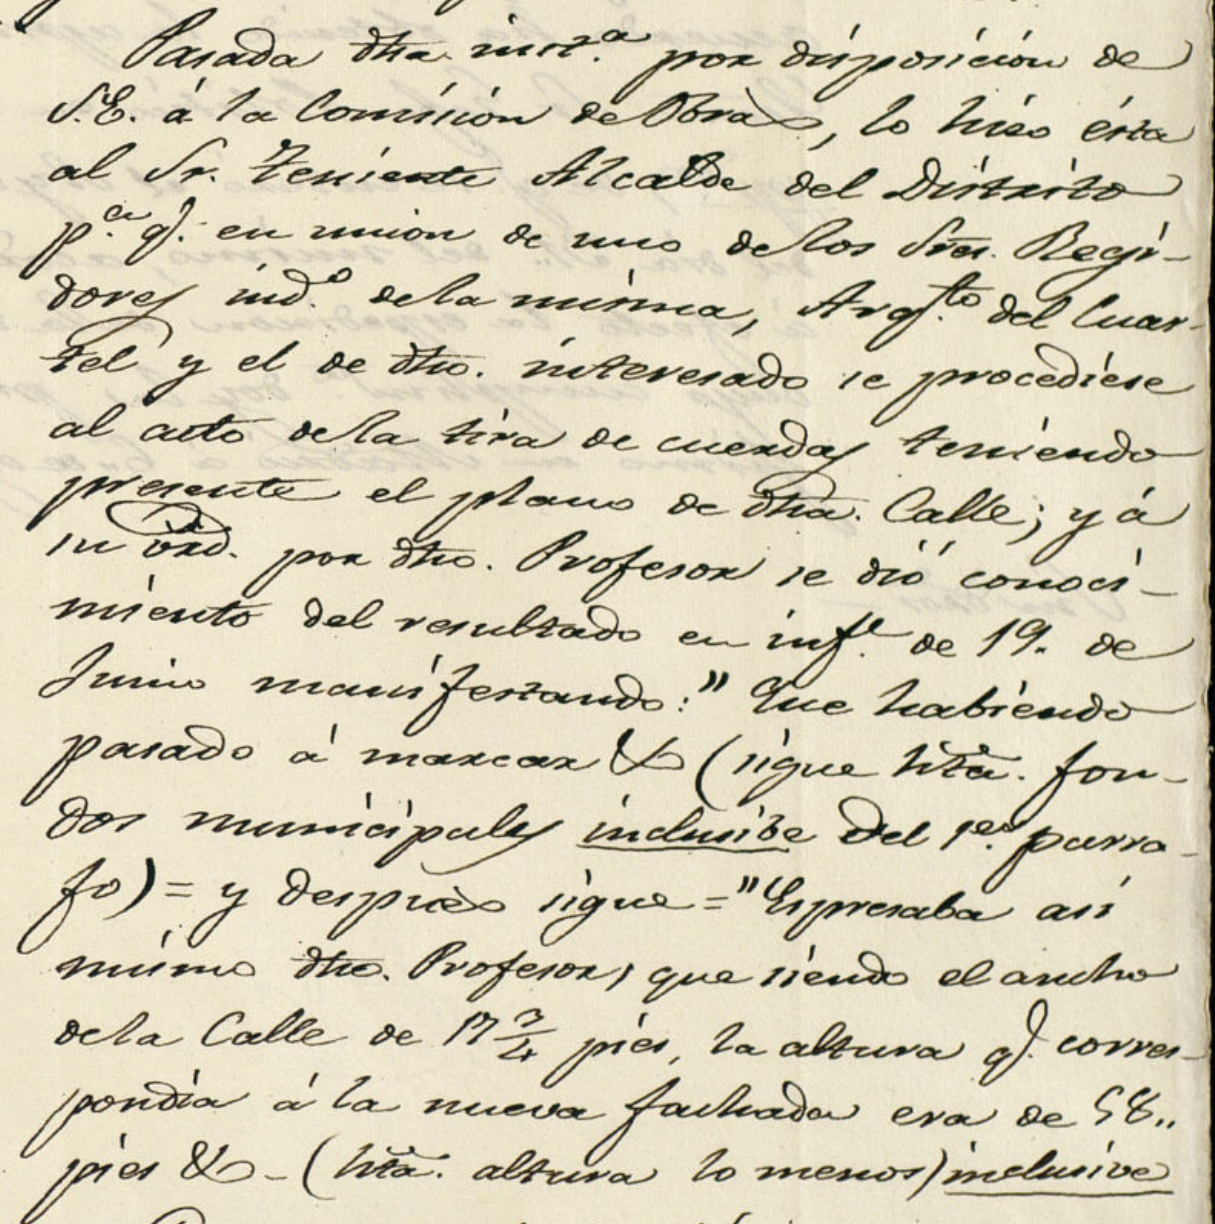 Pasada dha. inst.ª por disposición de
S.E. á la Comisión de Obras, lo hiso ésta
al Sr. Teniente Alcalde del Distrito
p.ª q. en union de uno de los Sres. Regi-
dores ind.º de la misma, Arq.to del Cuar-
tel y el de dho. interesado se procediese
al acto de la tira de cuerdas teniendo
presente el plano de dha. Calle; y á
su vrd. por dho. Profesor se dió conoci-
miento del resultado en inf.e de 19. de
Junio manifestando: " Que habiendo
pasado á marcar & (sigue litã. fon-
dos municipales inclusibe del 1.er parra-
fo) = y despues sigue = "Espresaba asi
mismo dho. Profesor, que siendo el ancho
de la Calle de 17 3/4 pies, la altura q. corres-
pondia á la nueva fachada era de 58..
pies & - (litã. altura lo menos) inclusive